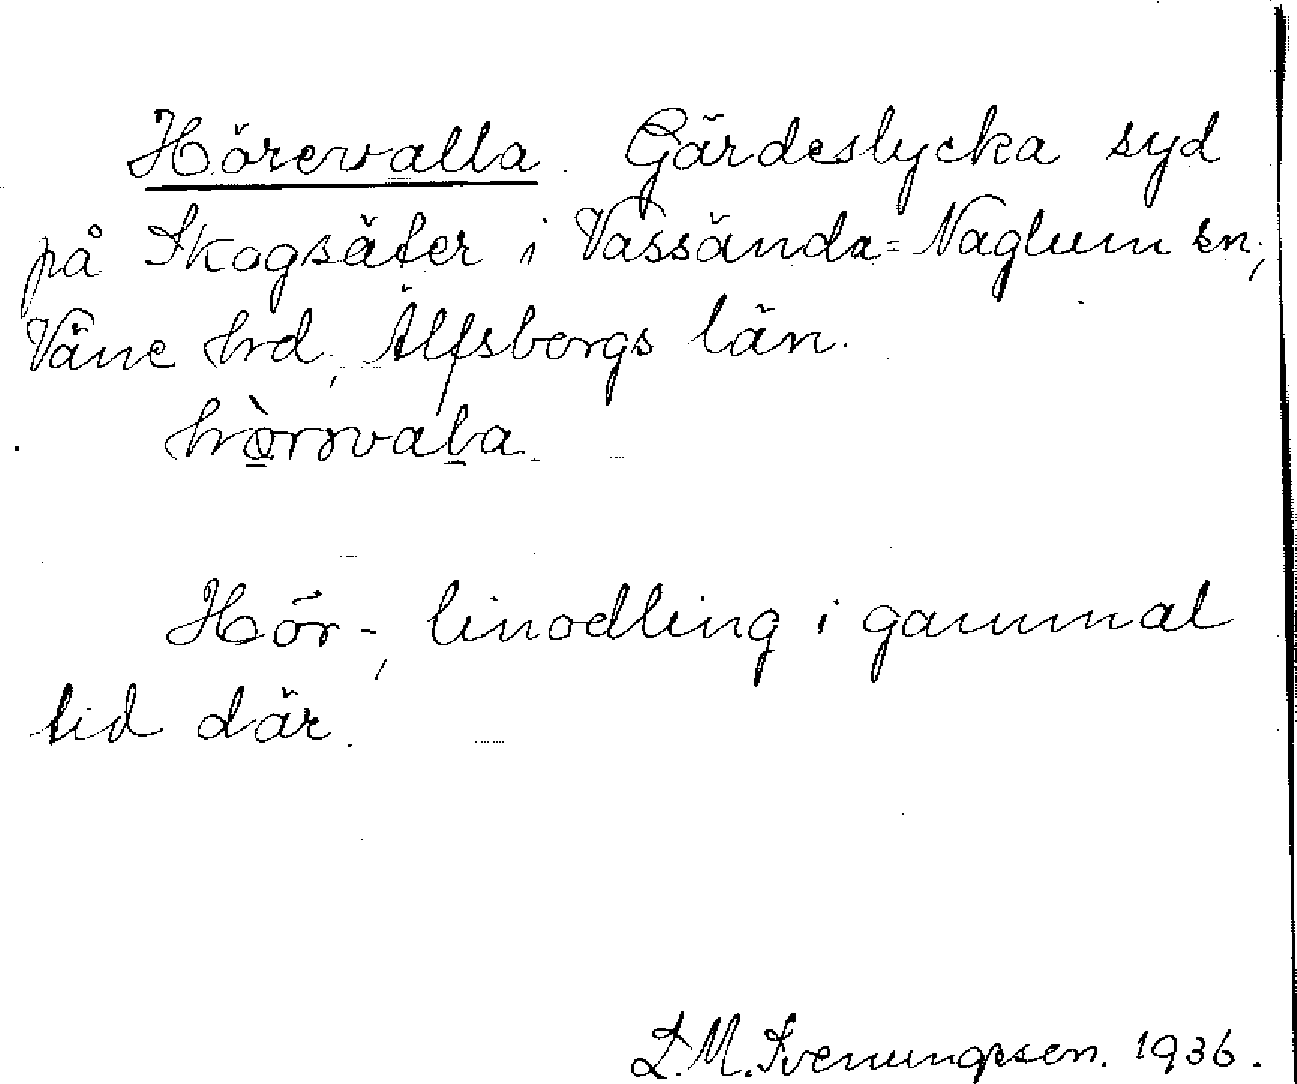 Hörevalla. Gärdeslycka syd
på Skogsäter i Vassända-Naglum sn,
Väne hrd, Älfsborgs län.
Hör-, linodling i gammal
tid där.
L.M. Svenungsson. 1936.